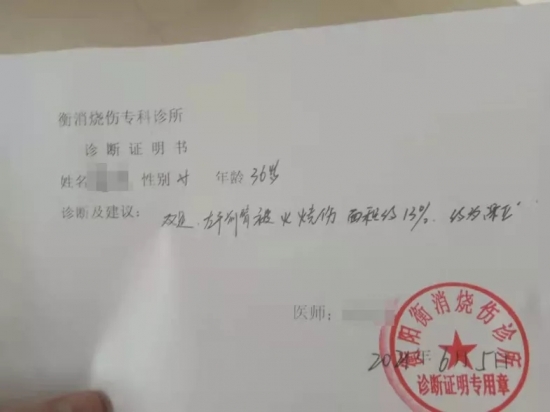 衡消烧伤专科诊所
诊断证明书
姓名 性别 年龄 36岁
诊断及建议: 双足、左手 被火烧伤 面积约13%.
医师:
2021年6月5日
阳衡消烧伤诊所
诊断证明专用章